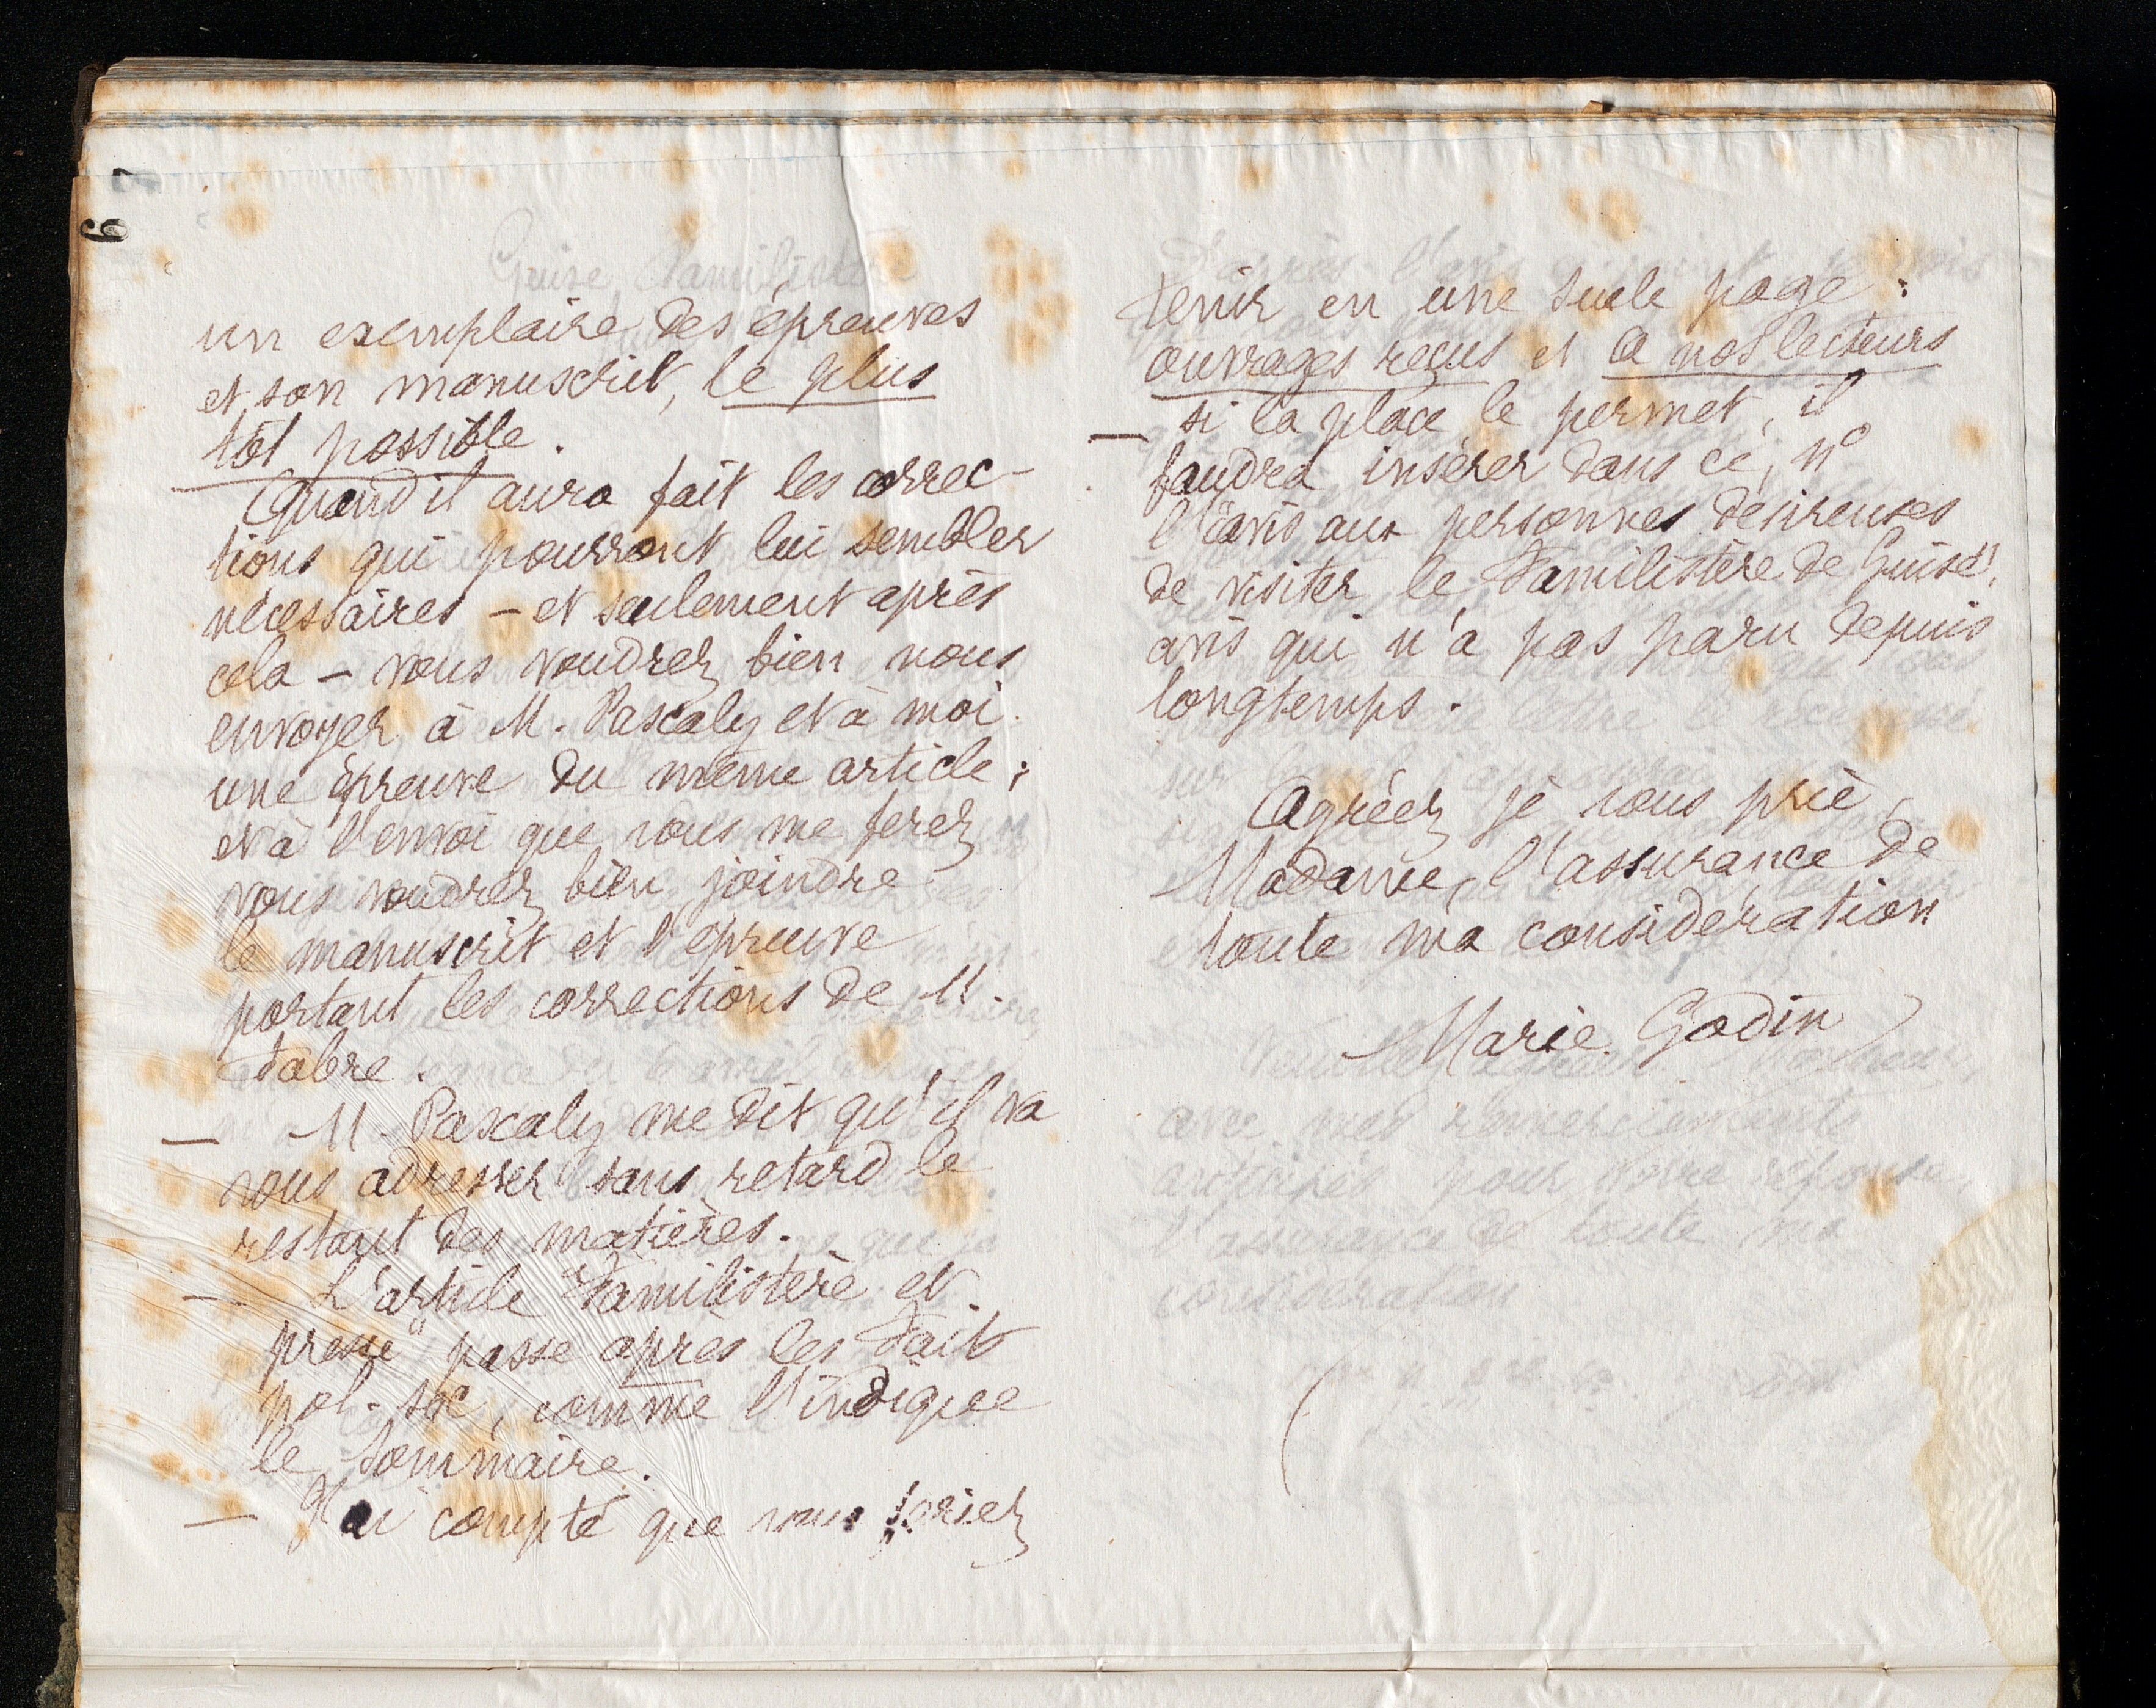 67
un exemplaire des épreuves
et son manuscrit, le plus
tôt possible.
Quand il aura fait les correc-
tions qui pourront lui sembler
nécessaires – et seulement après
cela – vous voudrez bien nous
envoyer à M. Pascaly et à moi
une épreuve du même article ;
et à l'envoi que vous me ferez
vous voudrez bien joindre
le manuscrit et l'épreuve
portant les corrections de M.
Fabre.
— M. Pascaly me dit qu'il va
vous adresser sans retard le
restant des matières.
— L'article "Familistère et
presse" passe après les Faits
pol. soc, comme l'indique
le Sommaire.
— J'ai compté que vous feriez
tenir en une seule page :
ouvrages reçus et à nos lecteurs
— si la place le permet, il
faudra insérer dans ce n°
l'"avis aux personnes désireuses
de visiter le Familistère de Guise",
avis qui n'a pas paru depuis
longtemps.
Agréez je vous prie,
Madame, l'assurance de
toute ma considération
Marie Godin